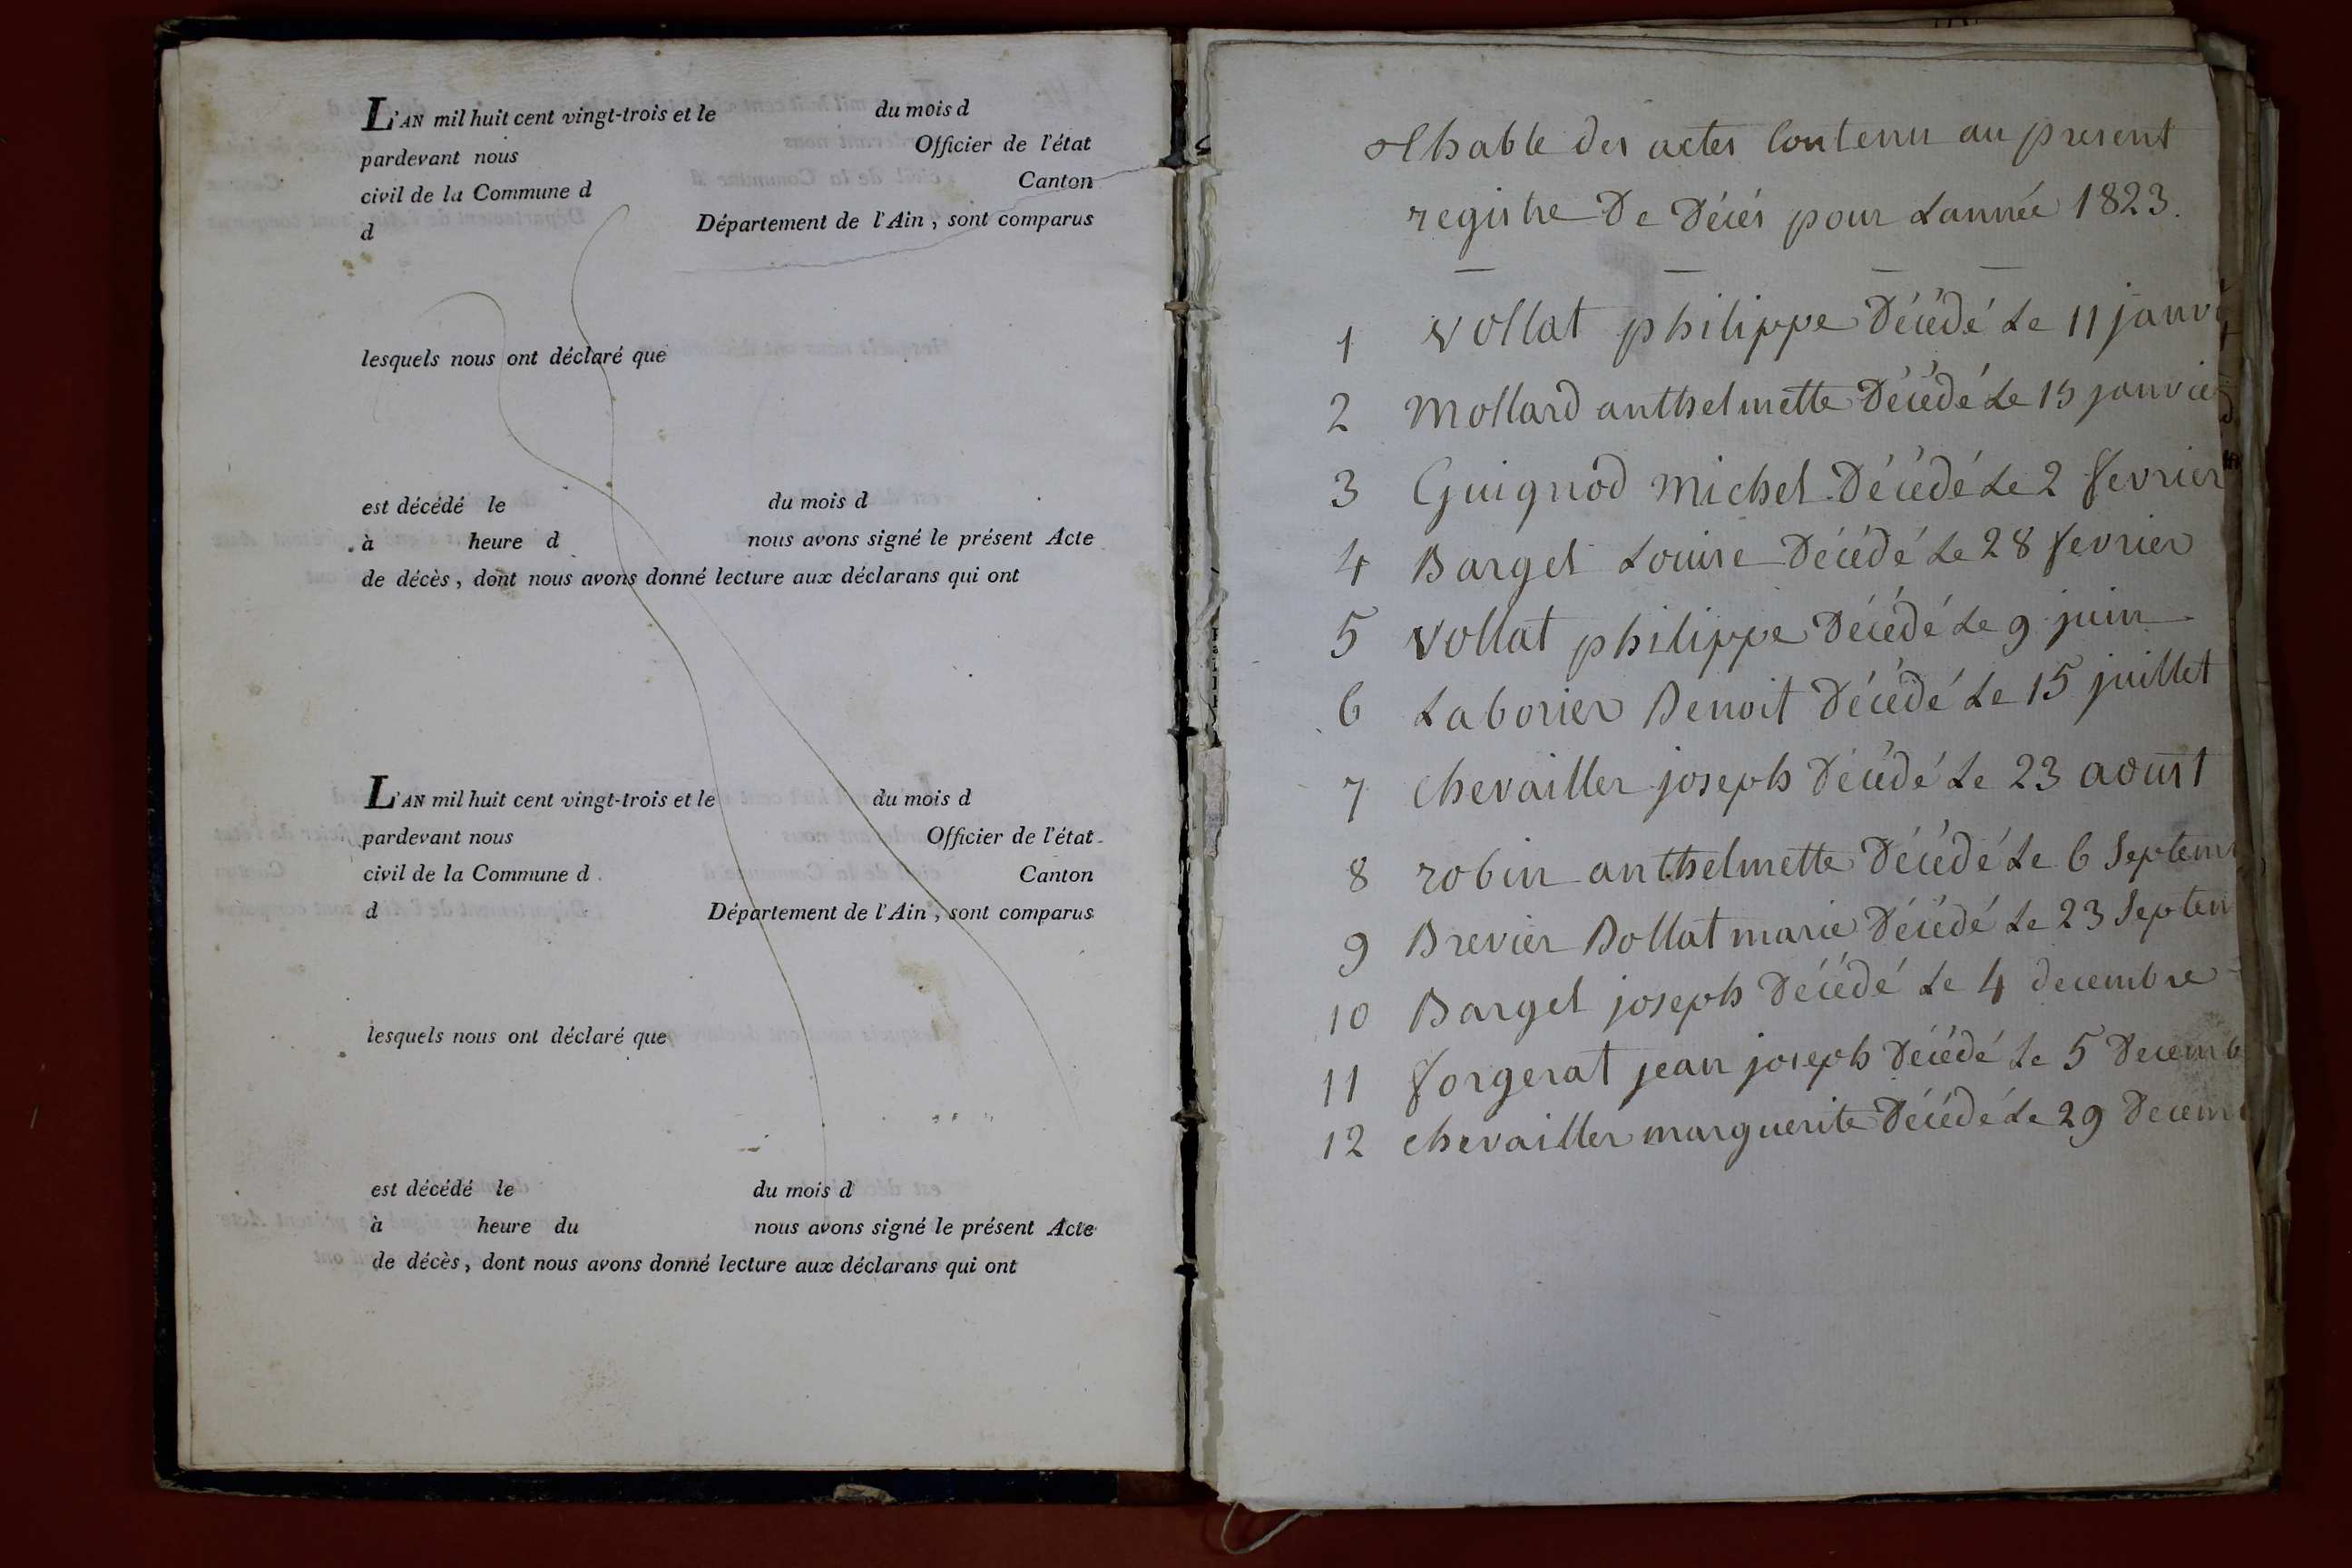 L'AN mil huit cent vingt-trois et le du mois d
pardevant nous Officier de l'état
civil de la Commune d Canton
d Département de l'Ain, sont comparus
lesquels nous ont déclaré que
est décédé le du mois d
à heure d nous avons signé le présent Acte
de décès, dont nous avons donné lecture aux déclarans qui ont
L'AN mil huit cent vingt-trois et le du mois d
pardevant nous Officier de l'état
civil de la Commune d Canton
d Département de l'Ain, sont comparus
lesquels nous ont déclaré que
est décédé le du mois d
à heure du nous avons signé le présent Acte
de décès, dont nous avons donné lecture aux déclarans qui ont
thable des actes Contenu au present
registre De Décés pour Lannée 1823.
1 vollat philippe Décédé Le 11 janvi
2 Mollard anthelmette Décédé Le 15 janvier
3 Guignod Michel Décédé Le 2 fevrier
4 Barget Louise Décédé Le 28 fevrier
5 vollat philippe Décédé Le 9 juin
6 Laborier Benoit Décédé Le 15 juillet
7 chevailler joseph Décédé Le 23 aoust
8 robin anthelmette Décédé Le 6 Septem
9 Brevier Bollat marie Décédé Le 23 Septem
10 Barget joseph Décédé Le 4 decembre
11 forgerat jean joseph Décédé Le 5 Decemb
12 chevailler marguerite Décédé Le 29 Decem